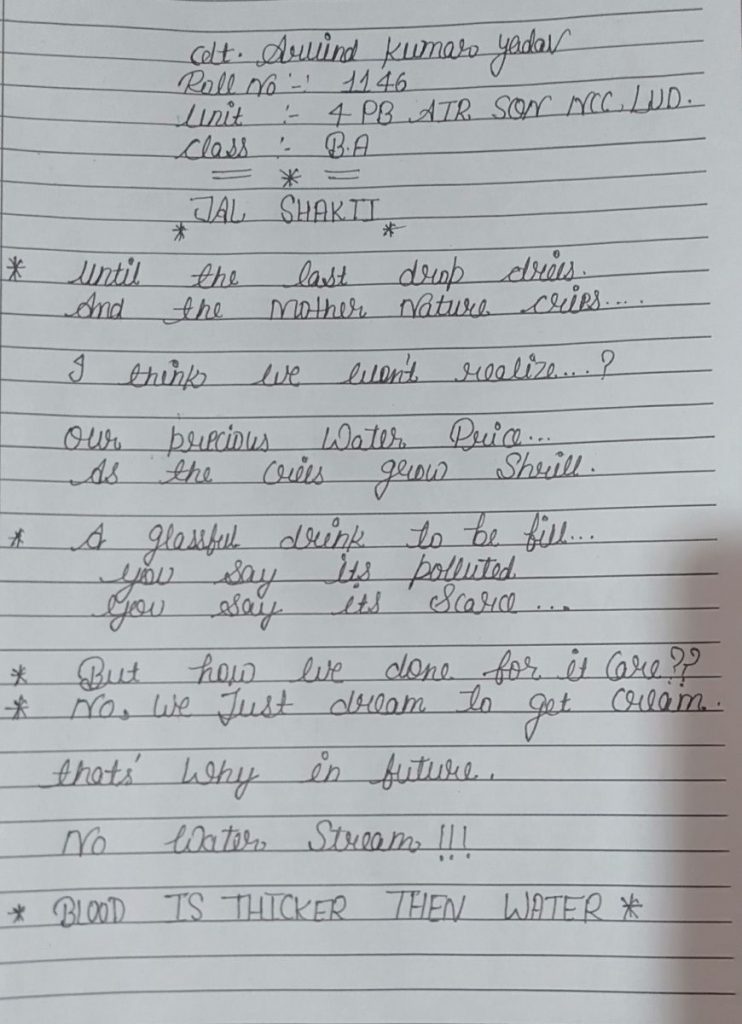 Cdt. Arvind Kumar Yadav
Roll No :-: 1146
Unit :- 4 PB AIR SQN NCC, LUD.
Class :- B.A
= * =
* JAL SHAKTI *
* Until the last drop dries.
And the Mother Nature cries....
I think we won't realize....?
Our precious Water Price...
As the cries grow Shrill.
* A glassful drink to be fill...
you say its polluted
you say its Scarce ...
* But how we done for it Care??
* No, We Just dream to get cream.
thats' Why in future.
No Water Stream!!!
* BLOOD IS THICKER THEN WATER *